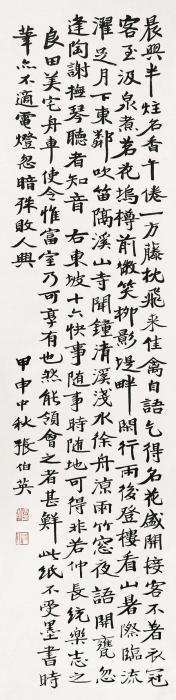 晨興半炷名香午倦一方藤枕飛來佳禽自語乞得名花盛開接客不著衣冠
客至汲泉煮茗花塢樽前微笑柳影堤畔閒行雨後登樓看山暑際臨流
濯足月下東鄰吹笛隔溪山寺聞鐘清溪淺水徐舟涼雨竹窗夜話開甕忽
逢陶謝撫琴聽者知音 右東坡十六快事隨事時隨地可得非若仲長統樂志之
良田美宅舟車使令惟富室乃可享有也然能領會之者甚鮮 此紙不受墨書時
華亦不適電燈忽暗殊敗人興
甲申中秋張伯英